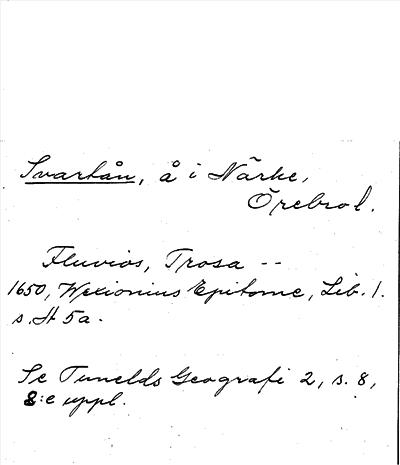 Svartån, å i Närke,
Örebro l.
Fluvios, Trosa --
1650, Wexionius Epitome, Lib. 1.
s. H 5a.
Se Tunelds Geografi 2, s. 8,
8:e uppl.